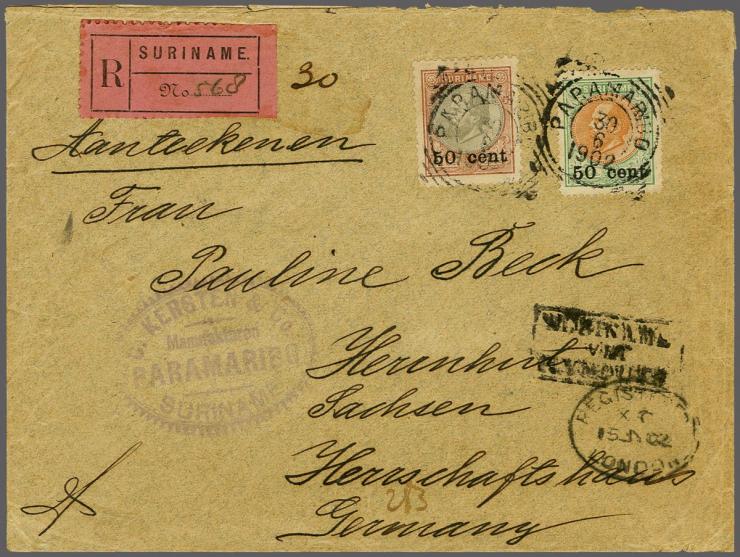 SURINAME.
R
No 568
30
SURINAME
PARAMARIBO
50 cent
PARAMARIBO
30
6
1902
50 cent
Aanteekenen
Frau
Pauline Beck
C. KERSTEN & Co.
Manufakturen
PARAMARIBO
SURINAME
Herrnhut
Sachsen
Herrschaftshaus
Germany
SURINAME
VIA
PLYMOUTH
REGISTERED
15 JY 02
LONDON
213